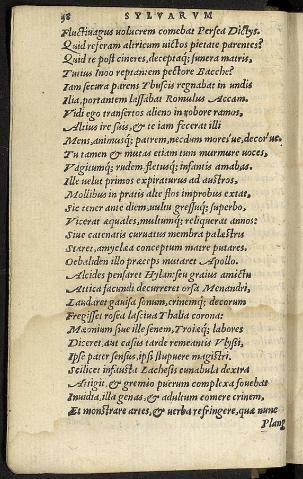 98 SYLVARVM
Fluctiuagus uolucrem comebat Persea Dictys.
Quid referam altricum uictos pietate parentes?
Quid te post cineres, deceptaq; funera matris,
Tutus Inoo reptantem pectore Bacche?
Iam secura parens Thuscis regnabat in undis
Ilia, portantem lassabat Romulus Accam.
Vidi ego transertos alieno in robore ramos,
Altius ire suis, & te iam fecerat illi
Mens, animusq; patrem, necdum mores'ue, decor'ue,
Tu tamen & mutas etiam tum murmure uoces,
Vagitumq; rudem, fletusq; infantis amabas.
Ille uelut primos expiraturus ad austros,
Mollibus in pratis alte flos improbus extat,
Sic tener ante diem, uultu gressuq; superbo,
Vicerat aequales, multumq; reliquerat annos:
Siue catenatis curuatus membra palæstris
Staret, amyclæa conceptum matre putares.
Oebaliden illo præceps mutaret Apollo.
Alcides pensaret Hylan: seu graius amictu
Attica facundi decurreret orsa Menandri,
Laudaret gauisa sonum, crinemq; decorum
Fregisset rosea lasciua Thalia corona:
Mæonium siue ille senem, Troiæq; labores
Diceret, aut casus tarde remeantis Vlyssi,
Ipse pater sensus, ipsi stupuere magistri.
Scilicet infausta Lachesis cunabula dextra
Attigit, & gremio puerum complexa fouebat
Inuidia, illa genas, & adultum comere crinem,
Et monstrare artes, & uerba refringere, quæ nunc
Plang